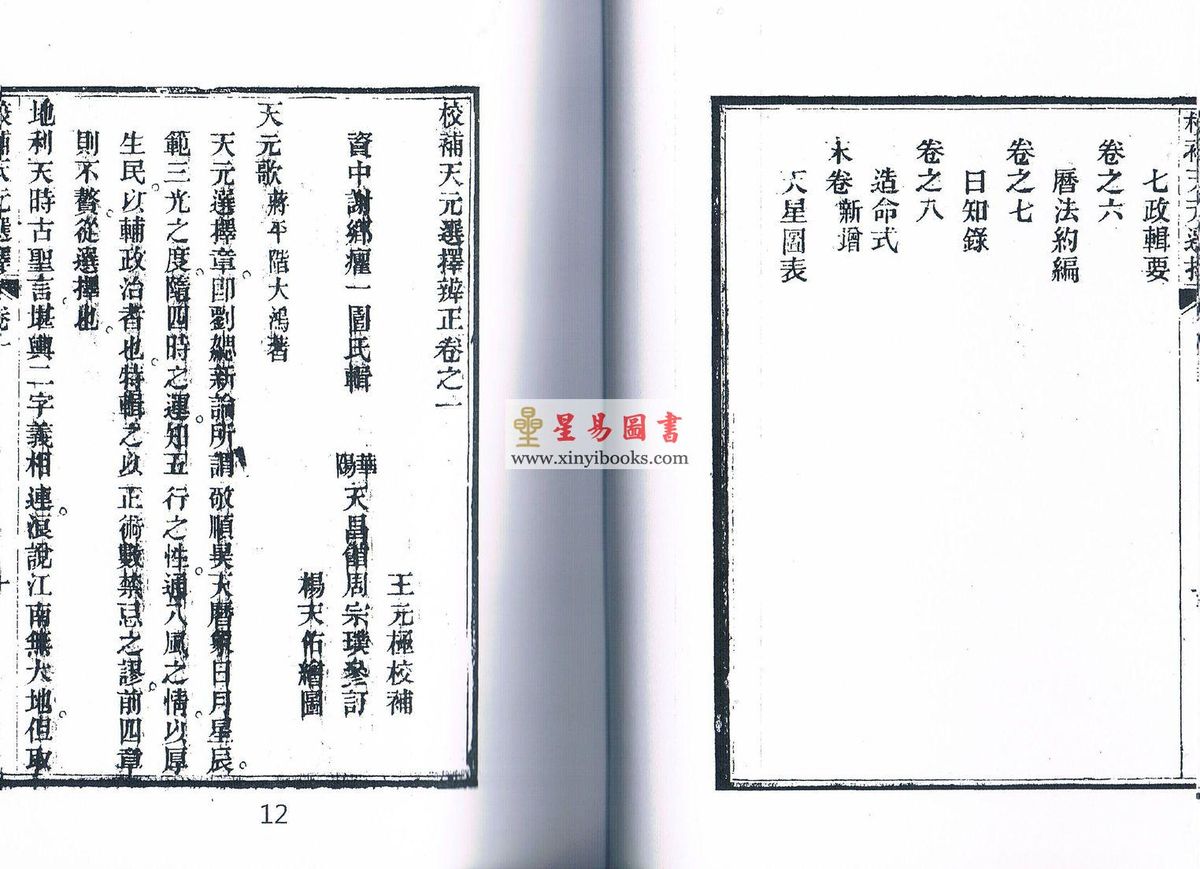 七政輯要
卷之六
曆法約編
卷之七
日知錄
卷之八
造命式
末卷 新增
天星圖表
校補天元選擇辨正卷之一
王元極校補
資中謝鄉癯一園氏輯 華陽天昌館周宗璞參訂
楊天佑繪圖
天元歌 蔣平階大鴻著
天元選擇章卽劉勰新論所謂敬順昊天曆象日月星辰。
範三光之度。隨四時之運。知五行之性。通八風之情。以厚
生民。以輔政治者也。特輯之以正術數禁忌之謬。前四章
則不贅。從選擇也。
地利天時古聖言堪輿二字義相連。浪說江南無大地。但取
星易圖書
www.xinyibooks.com
12